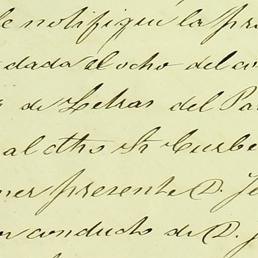 le notifiqué la pro
dada el ocho del co
de Letras del Pa
al dho Sr Curbe
ner presente D. Je
or conducto de D. J